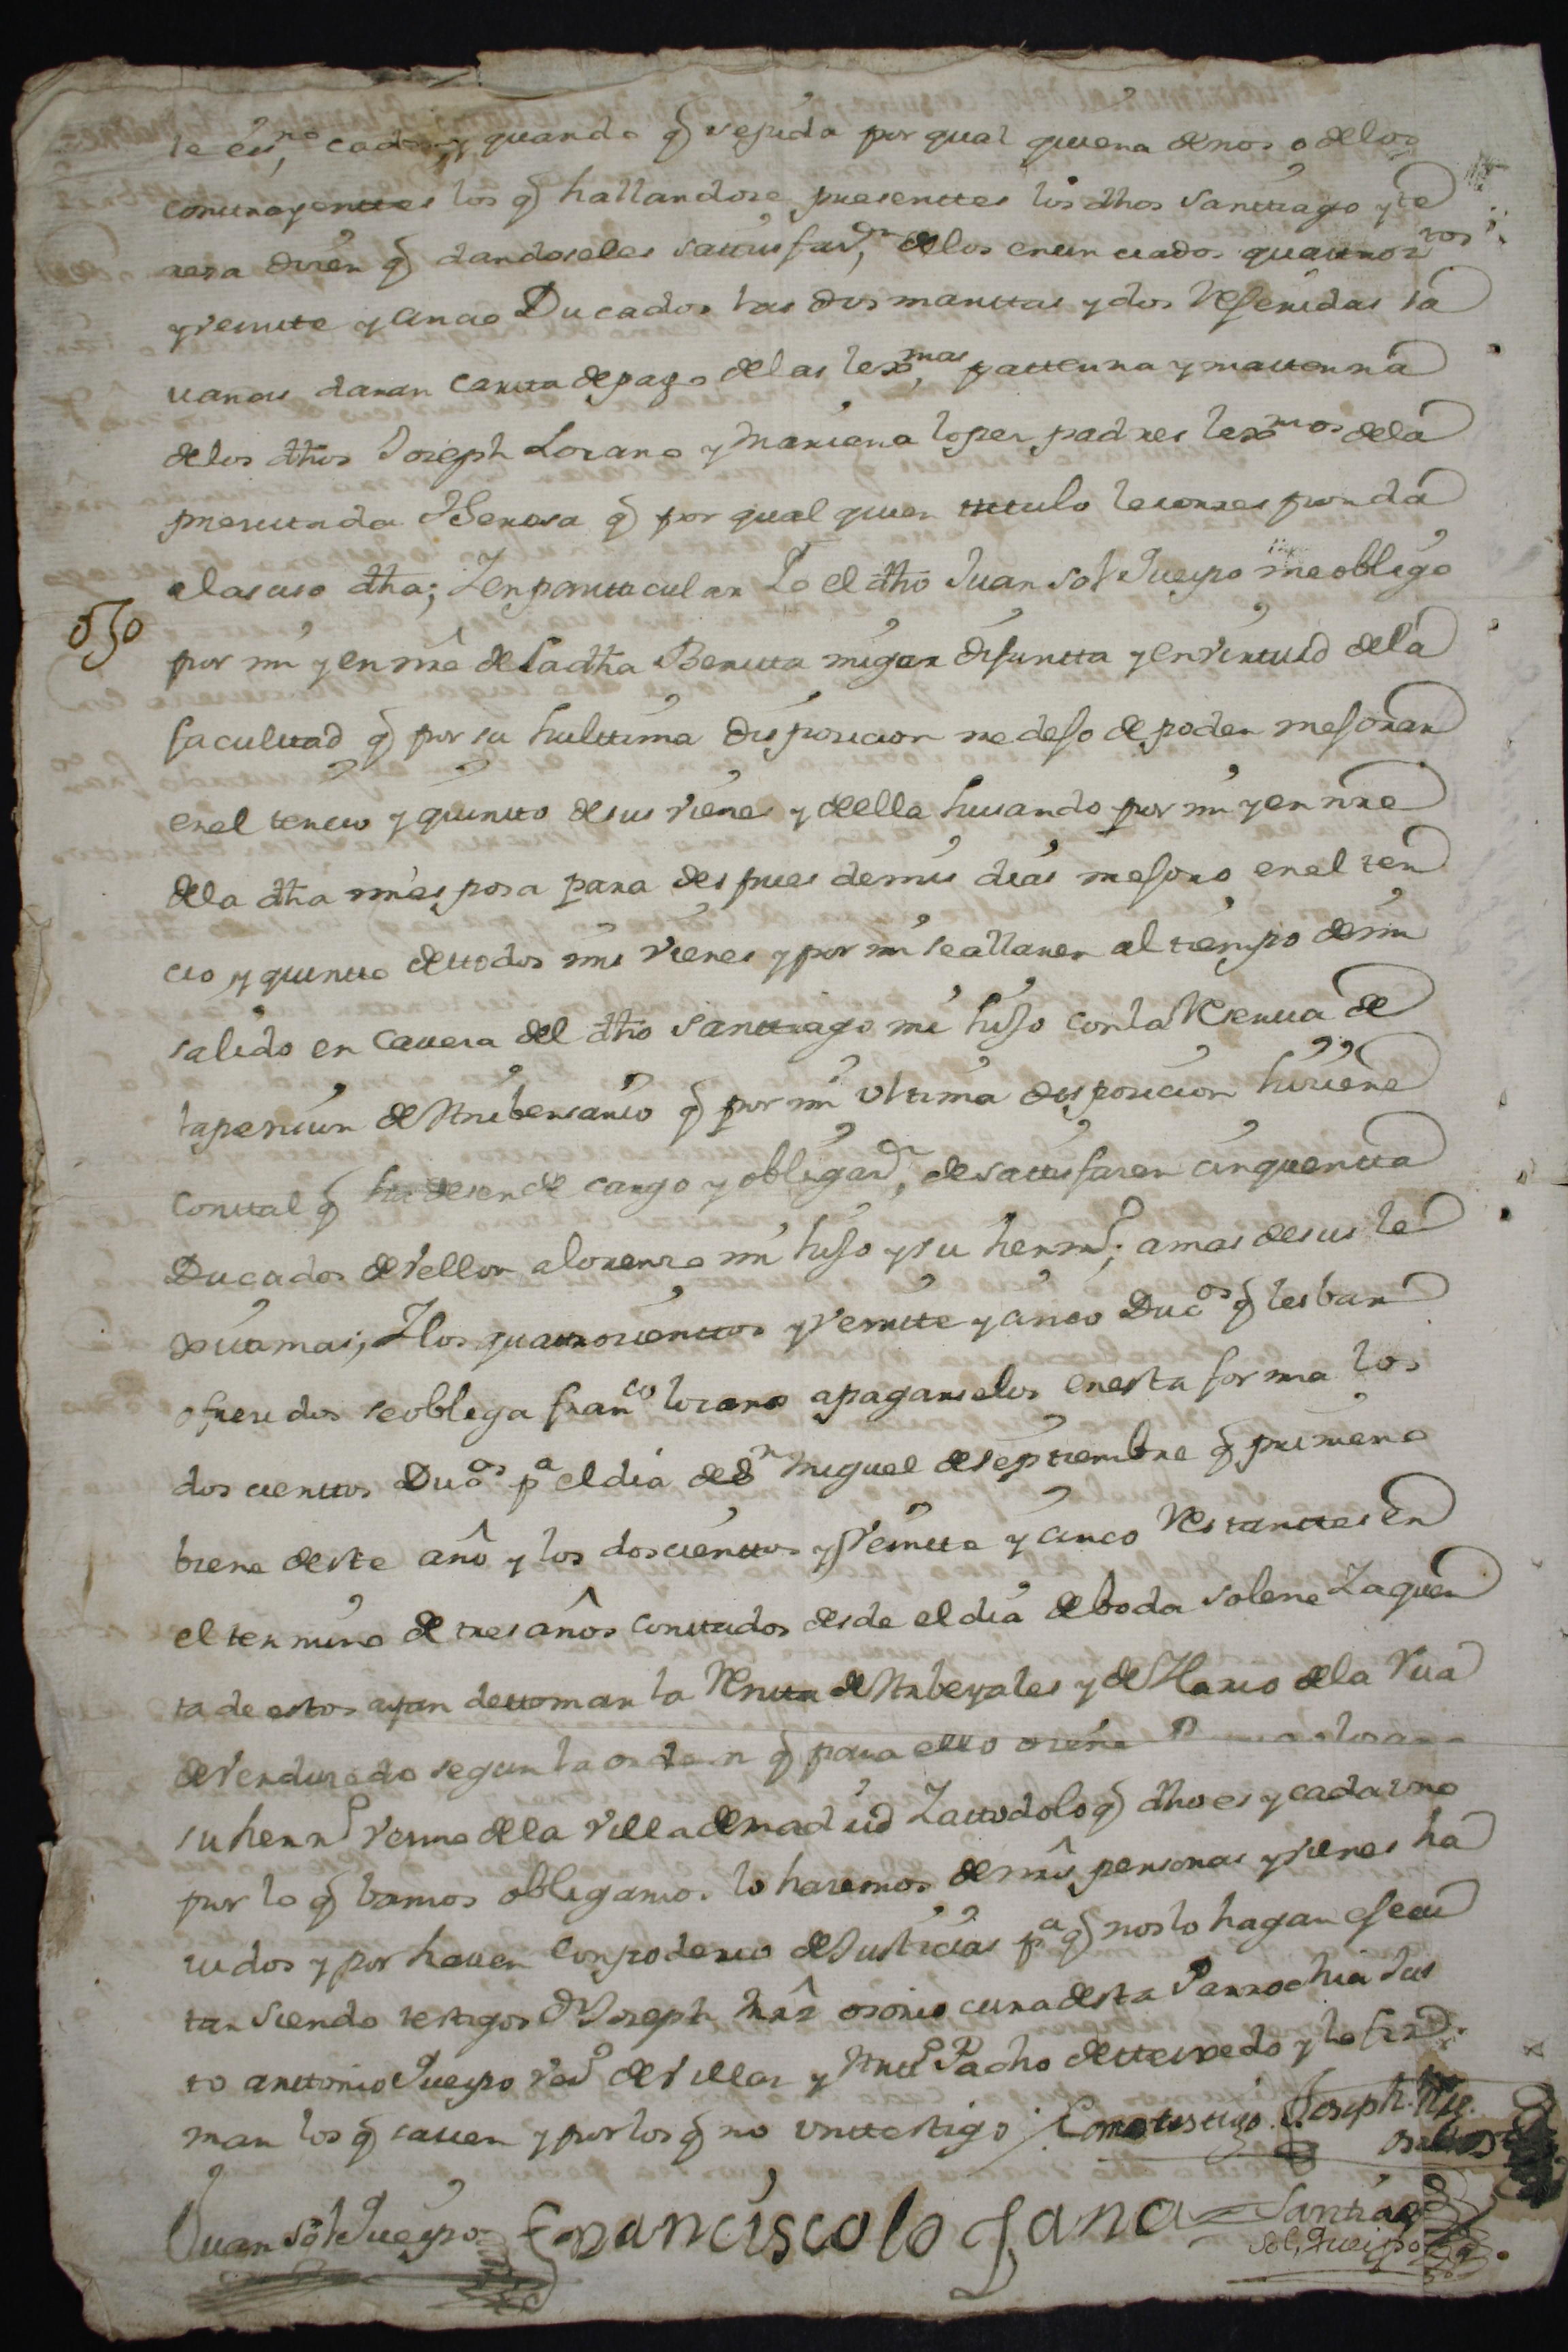 te es.no cada y quando q se pida por qual quiera de nos o de los
contrayenttes los q hallandose presenttes los dhos Santtiago y te
resa diçen q dandoseles sattisfaz.n de los enunciados quattroz.tos
y veintte y cinco Ducados las dos manttas y dos Referidas sa
uanas daran cartta de pago de las lex.mas patterna y matterna
de los dhos Joseph Lozano y Mariana lopez padres lex.mos de la
precittada Theresa q por qual quier tittulo le corresponda
a la suso dha; Y en partticular Yo el dho Juan Sol Queypo me obligo
por mi y en nre de la dha Benitta migar difuntta y en virttud de la
faculttad q por su hulttima disposicion me dejo de poder mejorar
en el tercio y quintto de sus vienes y de ella husando por mi y en nre
de la dha mi esposa para despues de mis dias mejoro en el ter
cio y quintto de ttodos mis vienes q por mi se allaren al tiempo de mi
salido en caueza del dho Santtiago mi hijo con la Reserua de
la percion de Anibersario q por mi Ultima disposicion hiziere
con tal q ha de ser de cargo y obligaz.n de sattisfazer cinquentta
Ducados de vellon a lorenzo mi hijo y su herm.o; a mas de sus le
xitimas; Y los quattrozienttos y veintte y cinco Duc.os q les ban
ofrezidos se obliga fran.co lozano a pagarselos en esta forma los
doscienttos Duc.os p.a el dia de S.n Miguel de septiembre q primero
biene de este año y los doscienttos y veintte y cinco Restanttes en
el termino de tres años conttados desde el dia de boda solene Y a quen
ta de estos ayan de ttomar la Rentta de Arbeyales y de Hario de la Vua
de Venduredo segun la orden q para ello diere lozano
su herm.o vezino de la villa de madrid Y a ttodo lo q dho es y cada uno
por lo q bamos obligamos lo haremos de nras personas y vienes ha
uidos y por hauer con poderio de Justicias p.a q nos lo hagan efecu
tar siendo testigos D. Joseph Mrz osorio cura de esta Parrochia Jus
to anttonio Queypo vez.o de Villar y Ant.o Pacho de tteixedo y lo fir
man los q sauen y por los q no un ttestigo; Como testigo Joseph Mrz.
osorio
Juan Sol Queypo Francisco lo Jano Santiago
Sol, Queipo